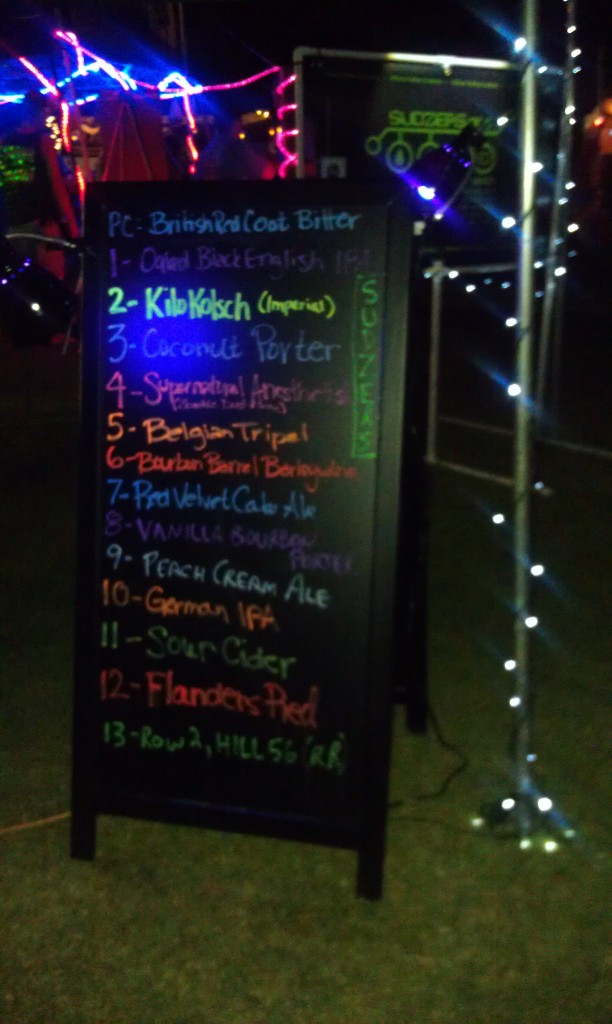 PC: British Red Coat Bitter
1- Oaked Black English IPA
2- Kilo Kolsch (Imperial)
3- Coconut Porter
4- Supernatural
5- Belgian Tripel
6- Bourbon Barrel Barleywine
7- Red Velvet Cake Ale
8- VANILLA BOURBON
PORTER
9- PEACH CREAM ALE
10- German IPA
11- Sour Cider
12- Flanders Red
13- Row 2, HILL 56 (RR)
SUDZERS
SUDZERS